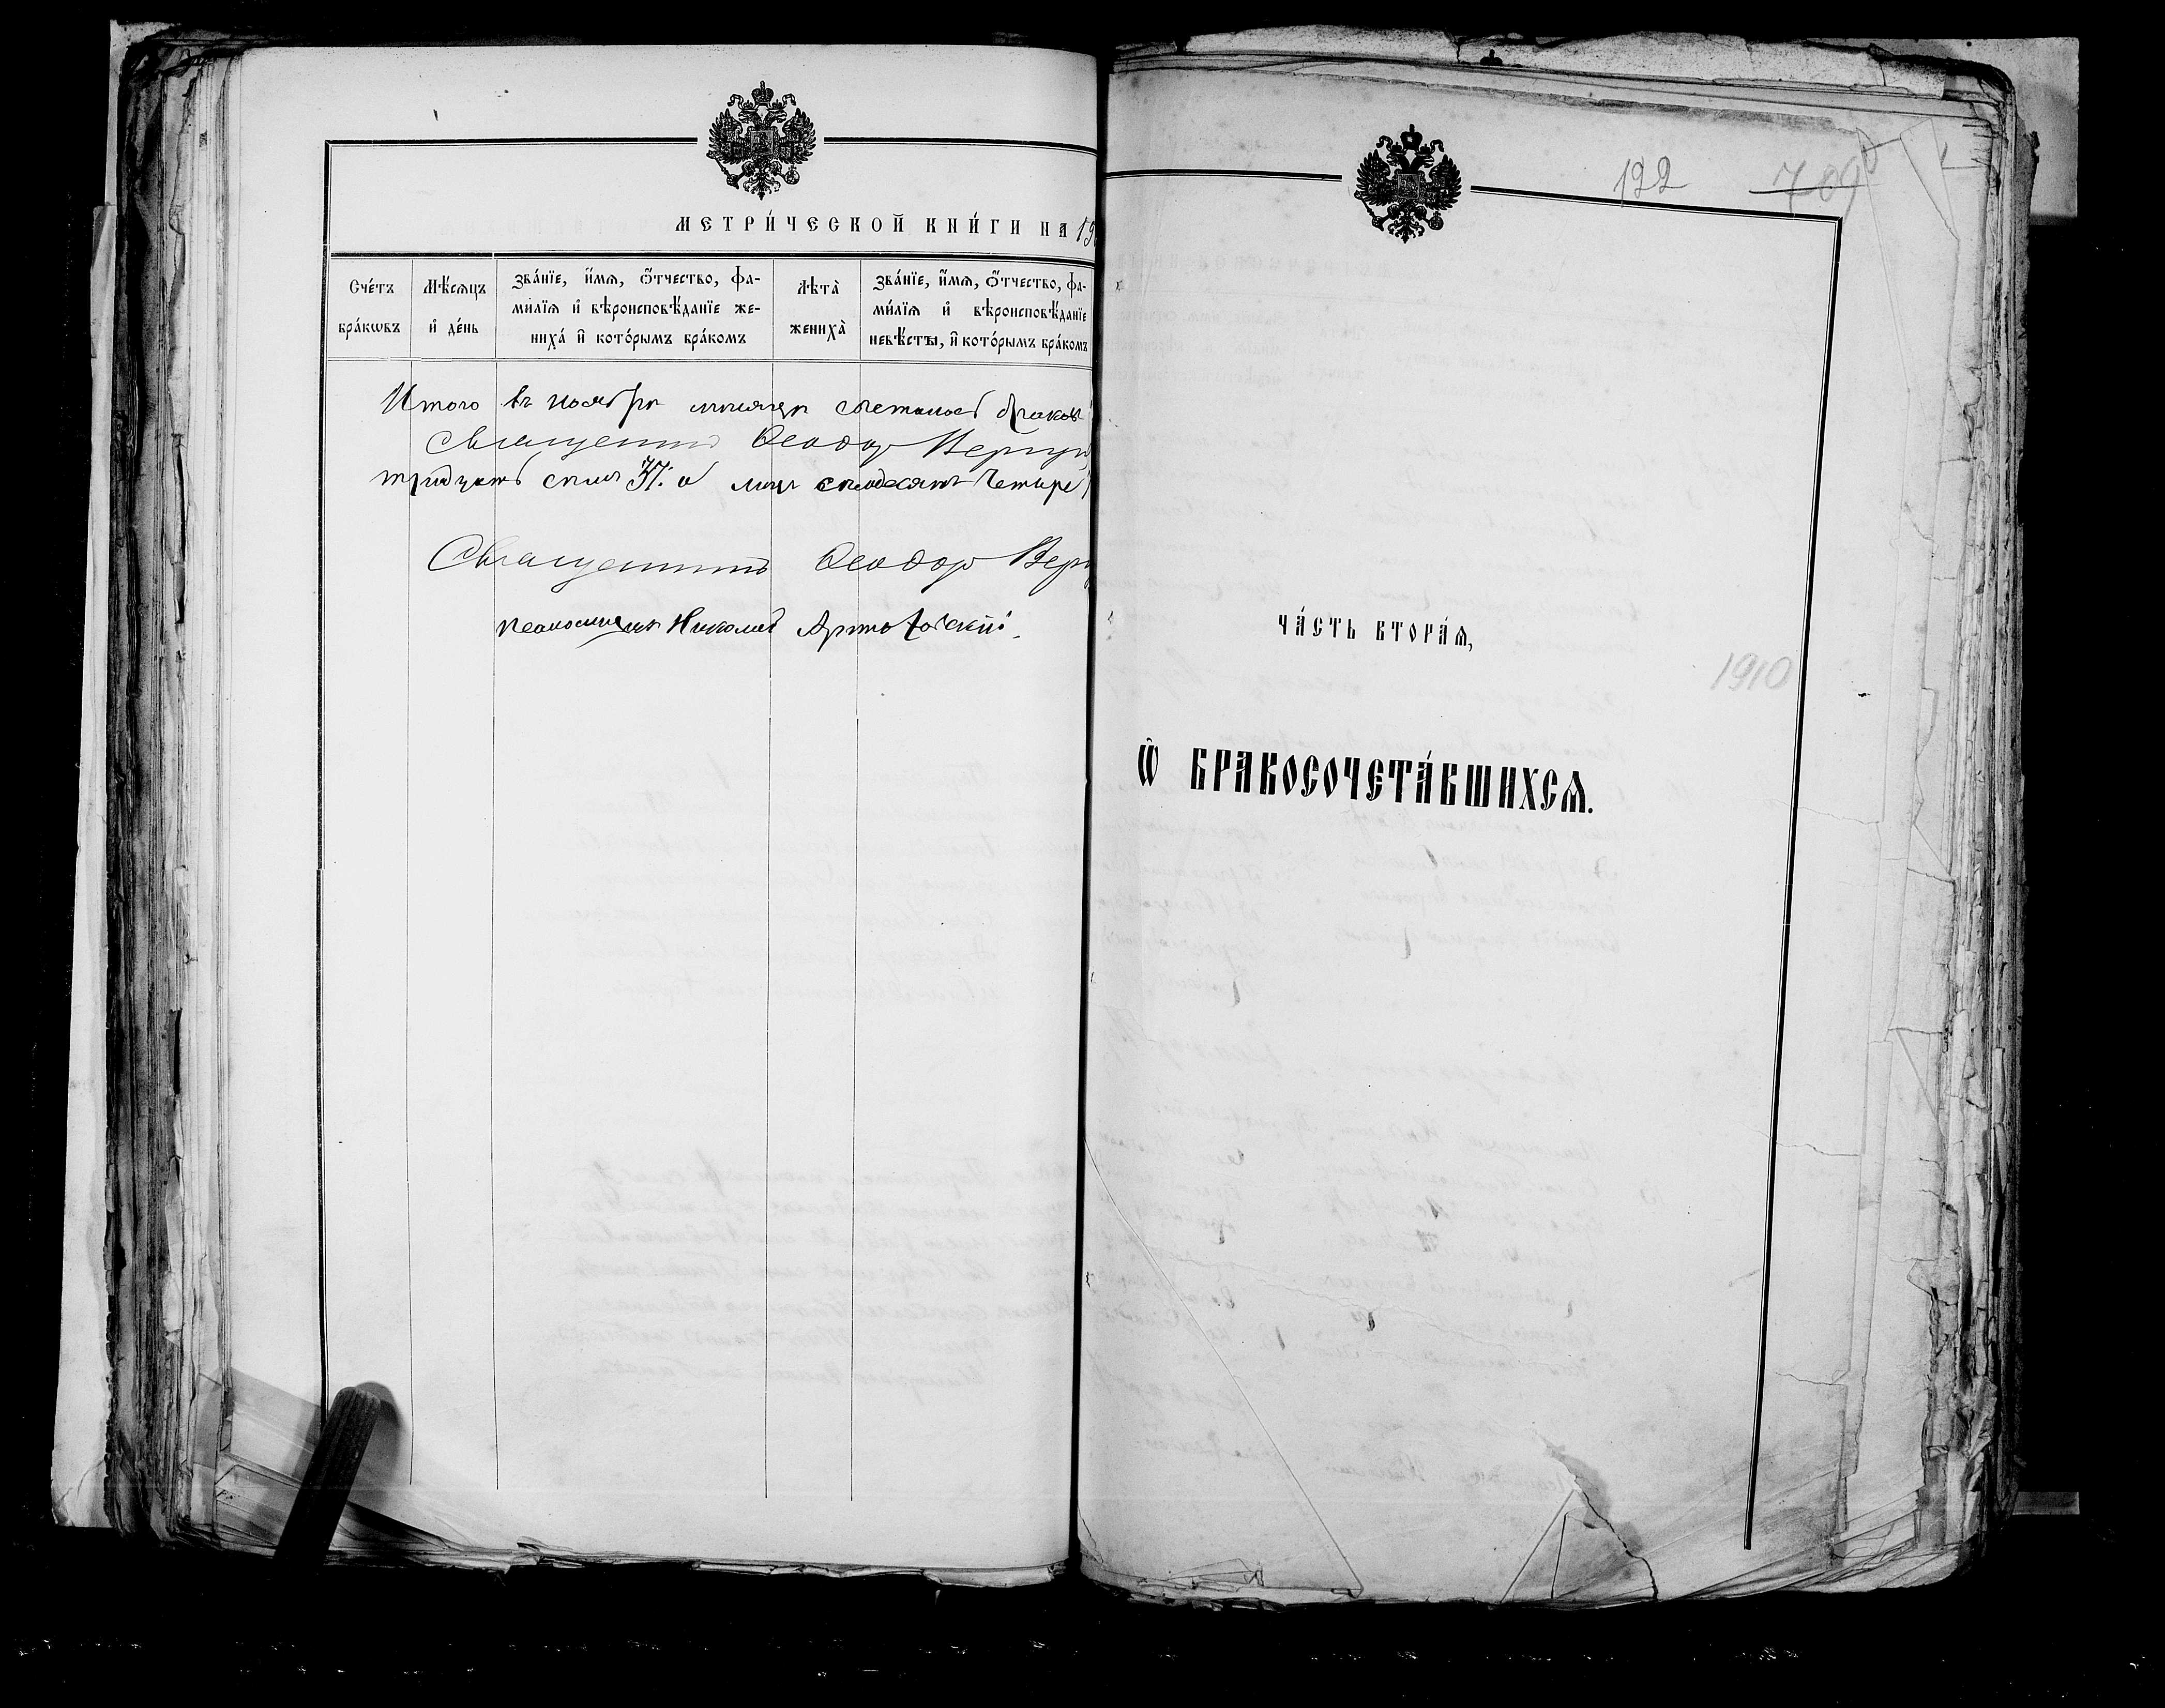 МЕТРИ́ЧЕСКОЙ КНИ́ГИ НА 19
Счéтъ
бра́кѡвъ
Мѣ́сѧцъ
и҆ дéнь
Зва́нїе, и҆́мѧ, ѻ҆́тчество, фа-
ми́лїѧ и҆ вѣроисповѣ́данїе же-
ниха́ и҆ кото́рымъ бра́комъ
Лѣта̀
жениха̀
Зва́нїе, и҆́мѧ, ѻ҆́тчество, фа-
ми́лїѧ и҆ вѣроисповѣ́данїе
невѣ́сты, и҆ кото́рымъ бра́комъ
Итого въ ноябрѣ мѣсяцѣ браковъ
Священникъ Ѳеодоръ
тридцать семь 37. и лицъ семьдесятъ четыре
Священникъ Ѳеодоръ
Псаломщикъ Николай
122
709
ЧА́СТЬ ВТОРА́Ѧ,
1910
Ѡ҆ БРАКОСОЧЕТА́ВШИХСѦ.